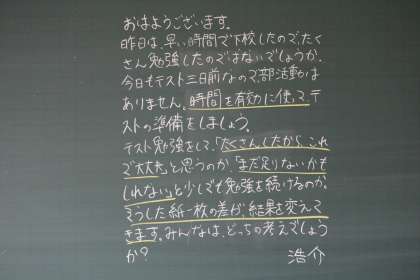 おはようございます。
昨日は、早い時間で下校したので、たく
さん勉強したのではないでしょうか。
今日もテスト三日前なので、部活動は
ありません。時間を有効に使ってテ
ストの準備をしましょう。
テスト勉強をして、「たくさんしたから、これ
で大丈夫」と思うのか「まだ足りないかも
しれない」と少しでも勉強を続けるのか。
そうした紙一枚の差が、結果を変えて
きます。みんなは、どっちの考えでしょう
か？ 浩介